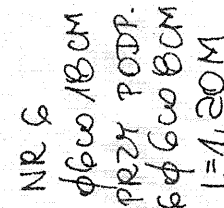 NR 6
ϕ6 co 18 CM
PRZY PODP.
6 ϕ 6 co 8 CM
L=1.20M